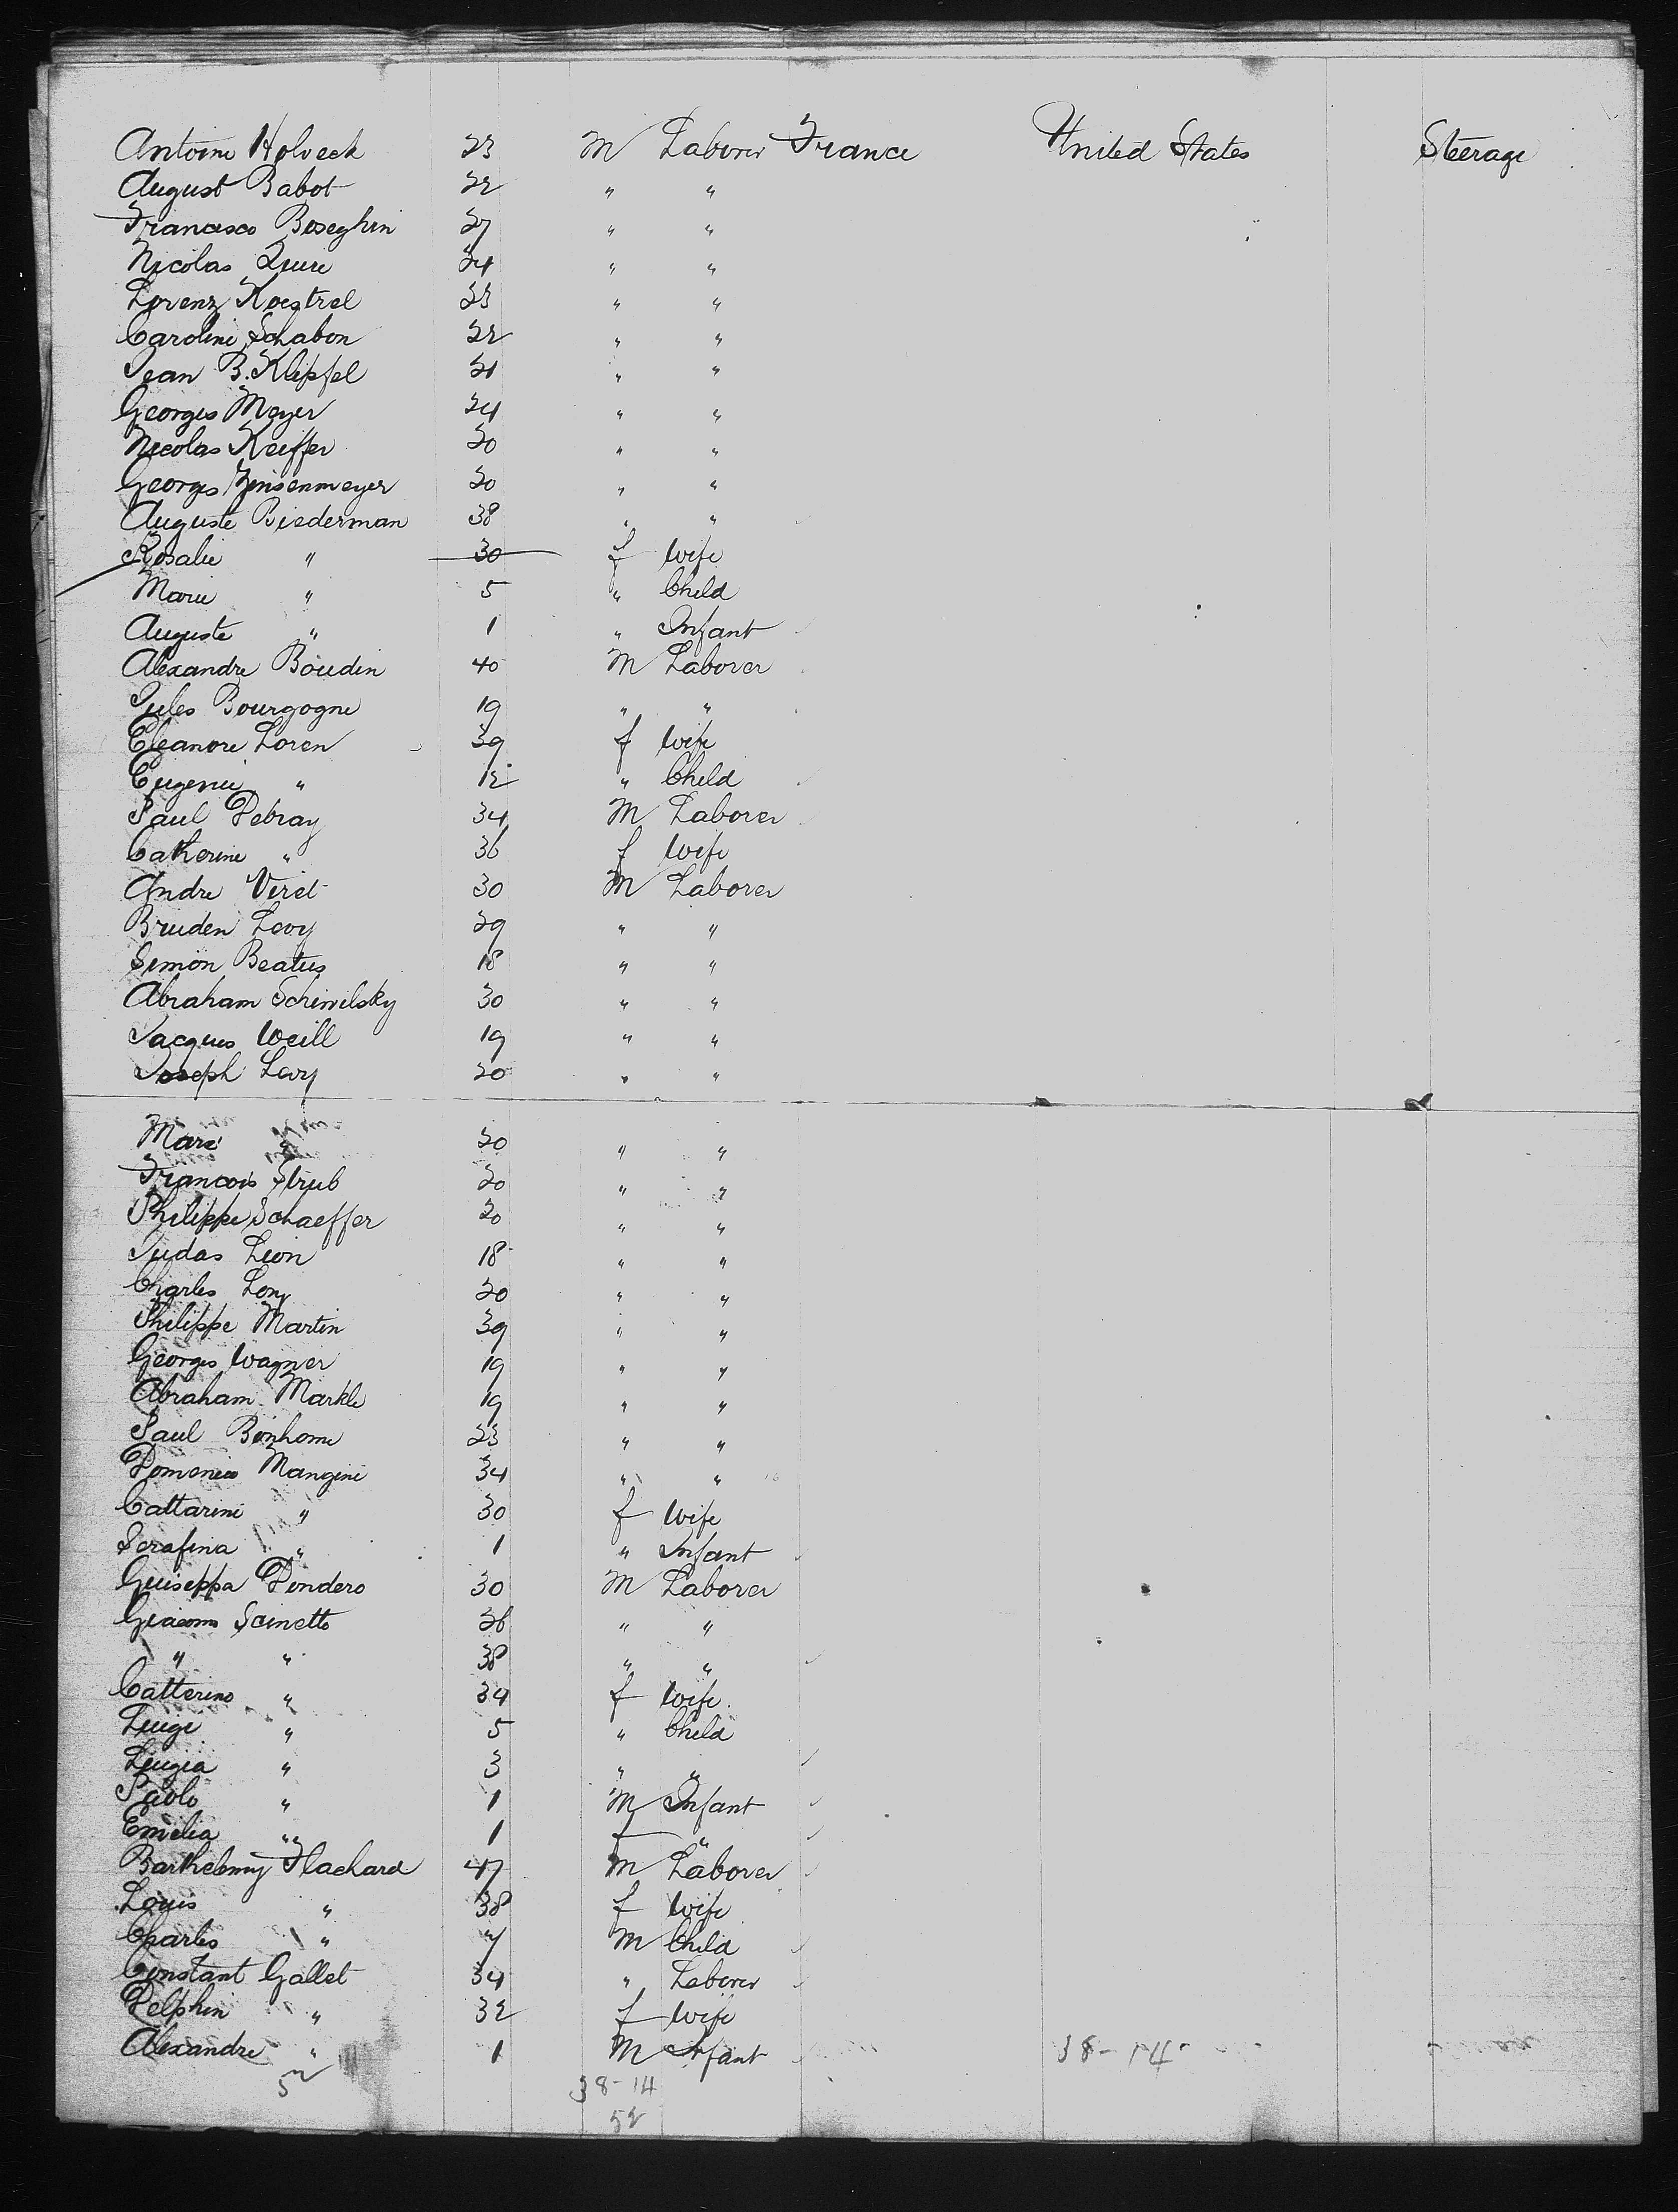 Antoine Holveck 23 M Laborer France United States Steerage
August Babot 22 " "
Francisco Boseghin 27 " "
Nicolas Quire 24 " "
Lorenz Koestrel 23 " "
Caroline Schabon 22 " "
Jean B. Klipfel 21 " "
Georges Meyer 24 " "
Nicolas Keiffer 20 " "
Georges Zinsenmeyer 20 " "
Auguste Biederman 38 " "
Rosalie " 30 f Wife
Marie " 5 " Child
Auguste " 1 " Infant
Alexandre Boudin 40 M Laborer
Jules Bourgogne 19 " "
Eleanore Loren 39 f Wife
Eugenie " 12 " Child
Paul Debray 34 M Laborer
Catherine " 36 f Wife
Andre Viret 30 M Laborer
Bruden Levy 29 " "
Simon Beatus 18 " "
Abraham Schiwilsky 30 " "
Jacques Weill 19 " "
Joseph Levy 20 " "
Marx " 20 " "
Francois Strub 20 " "
Philippe Schaeffer 20 " "
Judas Leon 18 " "
Charles Lony 20 " "
Philippe Martin 39 " "
Georges Wagner 19 " "
Abraham Markle 19 " "
Paul Bonhome 23 " "
Domenico Mangini 34 " "
Cattarini " 30 f Wife
Serafina " 1 " Infant
Guiseppa Dondero 30 M Laborer
Giacomo Scinetto 26 " "
" " 38 " "
Catterino " 34 f Wife
Luigi " 5 " Child
Luigia " 3 " "
Paolo " 1 M Infant
Emelia " 1 f "
Barthelemy Flachard 47 M Laborer
Louis " 38 f Wife
Charles " 7 M Child
Constant Gallet 34 " Laborer
Delphin " 32 f Wife
Alexandre " 1 M Infant 38-14
52 38-14
52